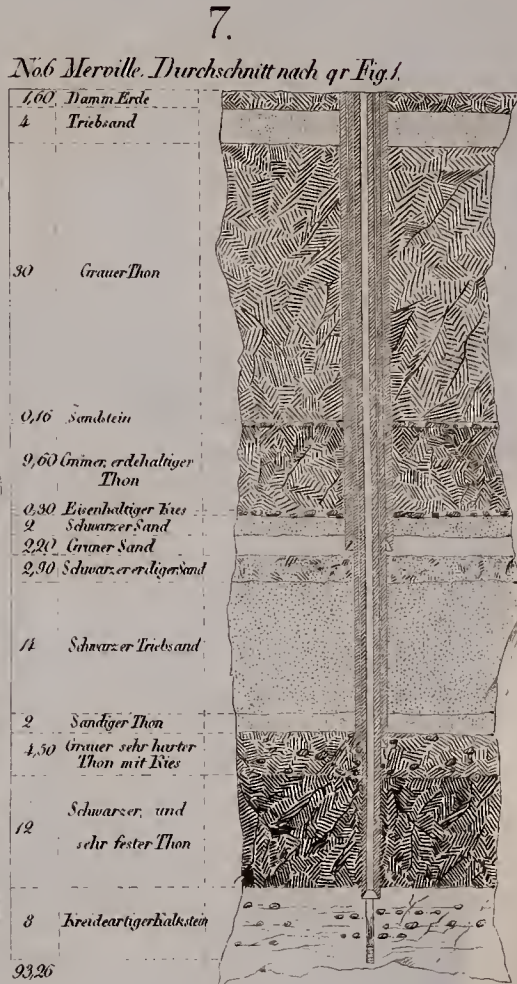 7.
No.6 Merville. Durchschnitt nach qr Fig.1.
1,60 Damm Erde
4 Triebsand
30 Grauer Thon
0,16 Sandstein
9,60 Grüner, erdehaltiger
Thon
0,30 Eisenhaltiger Kies
2 Schwarzer Sand
2,20 Grüner Sand
2,90 Schwarzer erdiger Sand
14 Schwarzer Triebsand
2 Sandiger Thon
4,50 Grauer sehr harter
Thon mit Kies
12 Schwarzer, und
sehr fester Thon
8 Kreideartiger Kalkstein
93,26